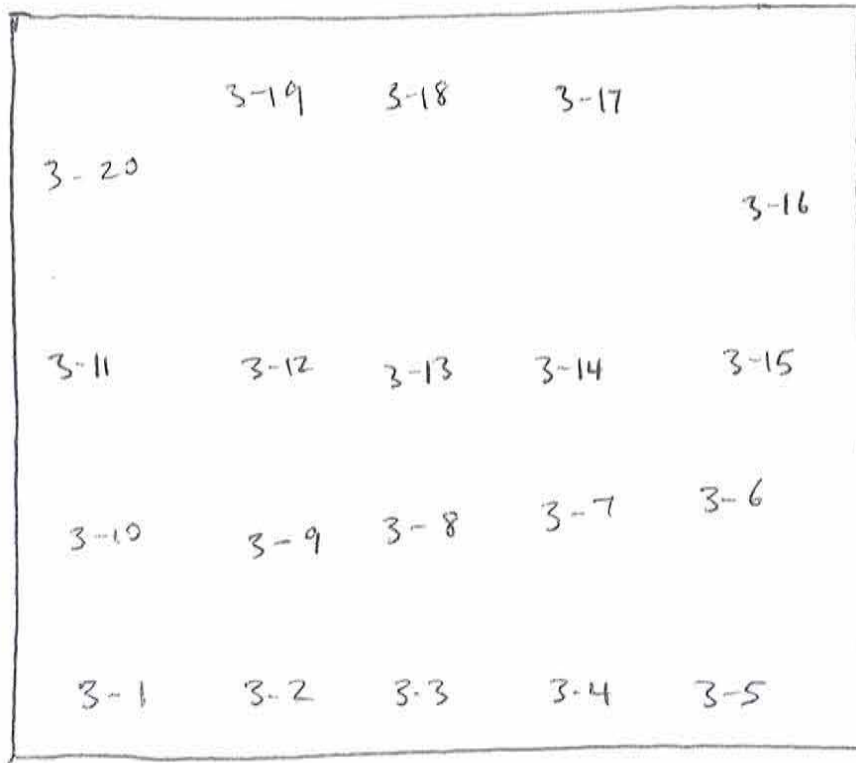 3-19 3-18 3-17
3-20
3-16
3-11 3-12 3-13 3-14 3-15
3-10 3-9 3-8 3-7 3-6
3-1 3-2 3-3 3-4 3-5